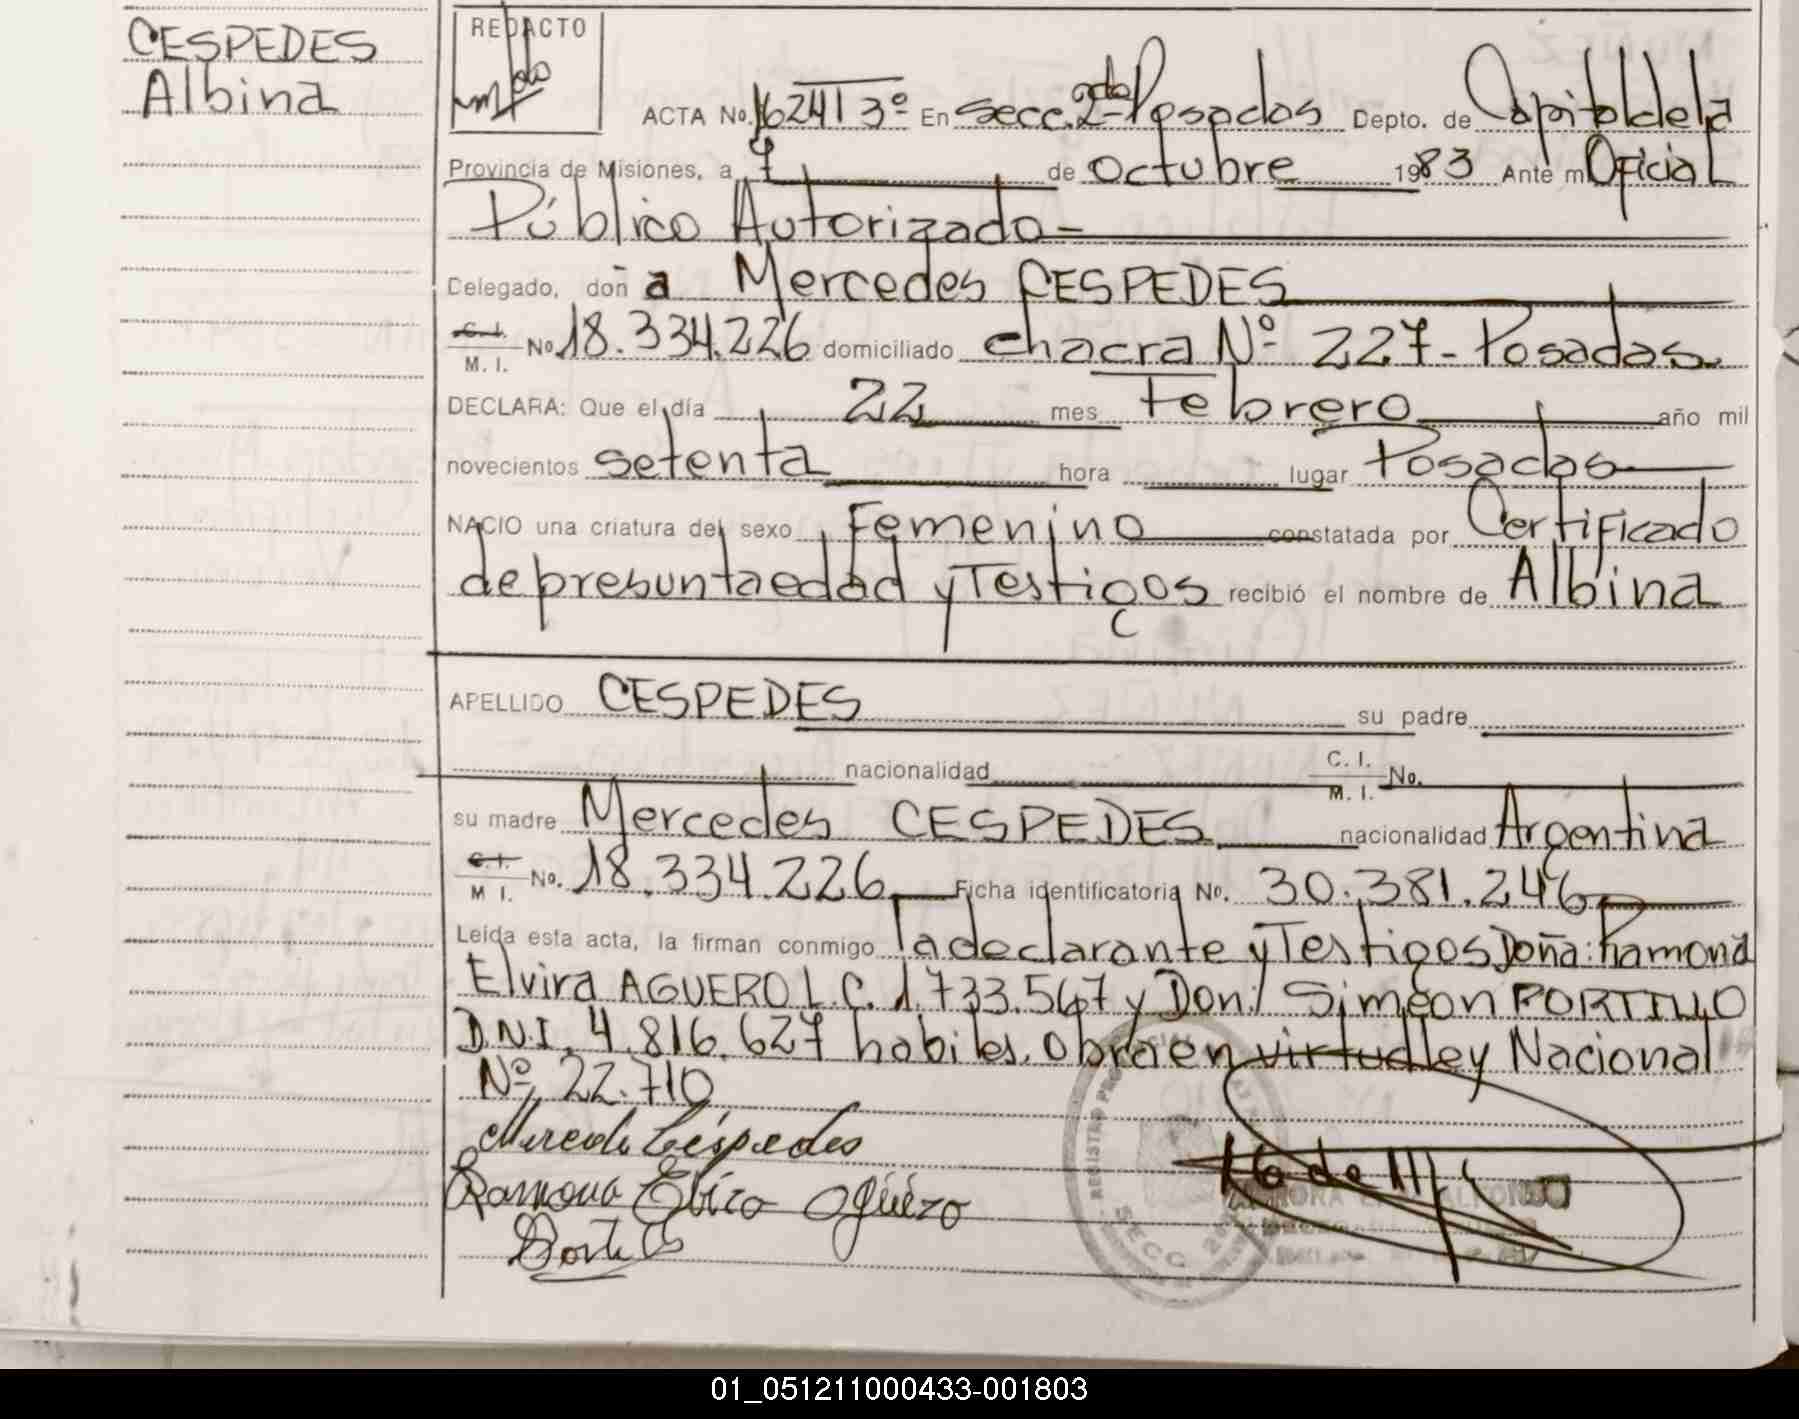 CESPEDES
Albina
REDACTO
ACTA No. 1624 T 3º En Secc. 2da Posadas Depto. de Capital de la
Provincia de Misiones, a 7 de octubre 1983 Ante mí Oficial
Público Autorizado-
Delegado, doña Mercedes CESPEDES
C. I. M. I. No 18.334.226 domiciliado chacra Nº 227- Posadas.
DECLARA: Que el día 22 mes Febrero año mil
novecientos setenta hora lugar Posadas
NACIO una criatura del sexo Femenino constatada por Certificado
de presunta edad y Testigos recibió el nombre de Albina
APELLIDO CESPEDES su padre
nacionalidad C. I. M. I. No.
su madre Mercedes CESPEDES nacionalidad Argentina
C. I. M I. No. 18.334.226 Ficha identificatoria No. 30.381.246
Leida esta acta, la firman conmigo la declarante y Testigos Doña: Ramona
Elvira AGUERO L.C. 1.733.567 y Don: Simeon PORTILLO
D.N.I. 4.816.627 habiles. Obra en virtud ley Nacional
Nº 22.710
Mercede Céspedes
Ramona Elvira Agüero
REGISTRO SECC 2da